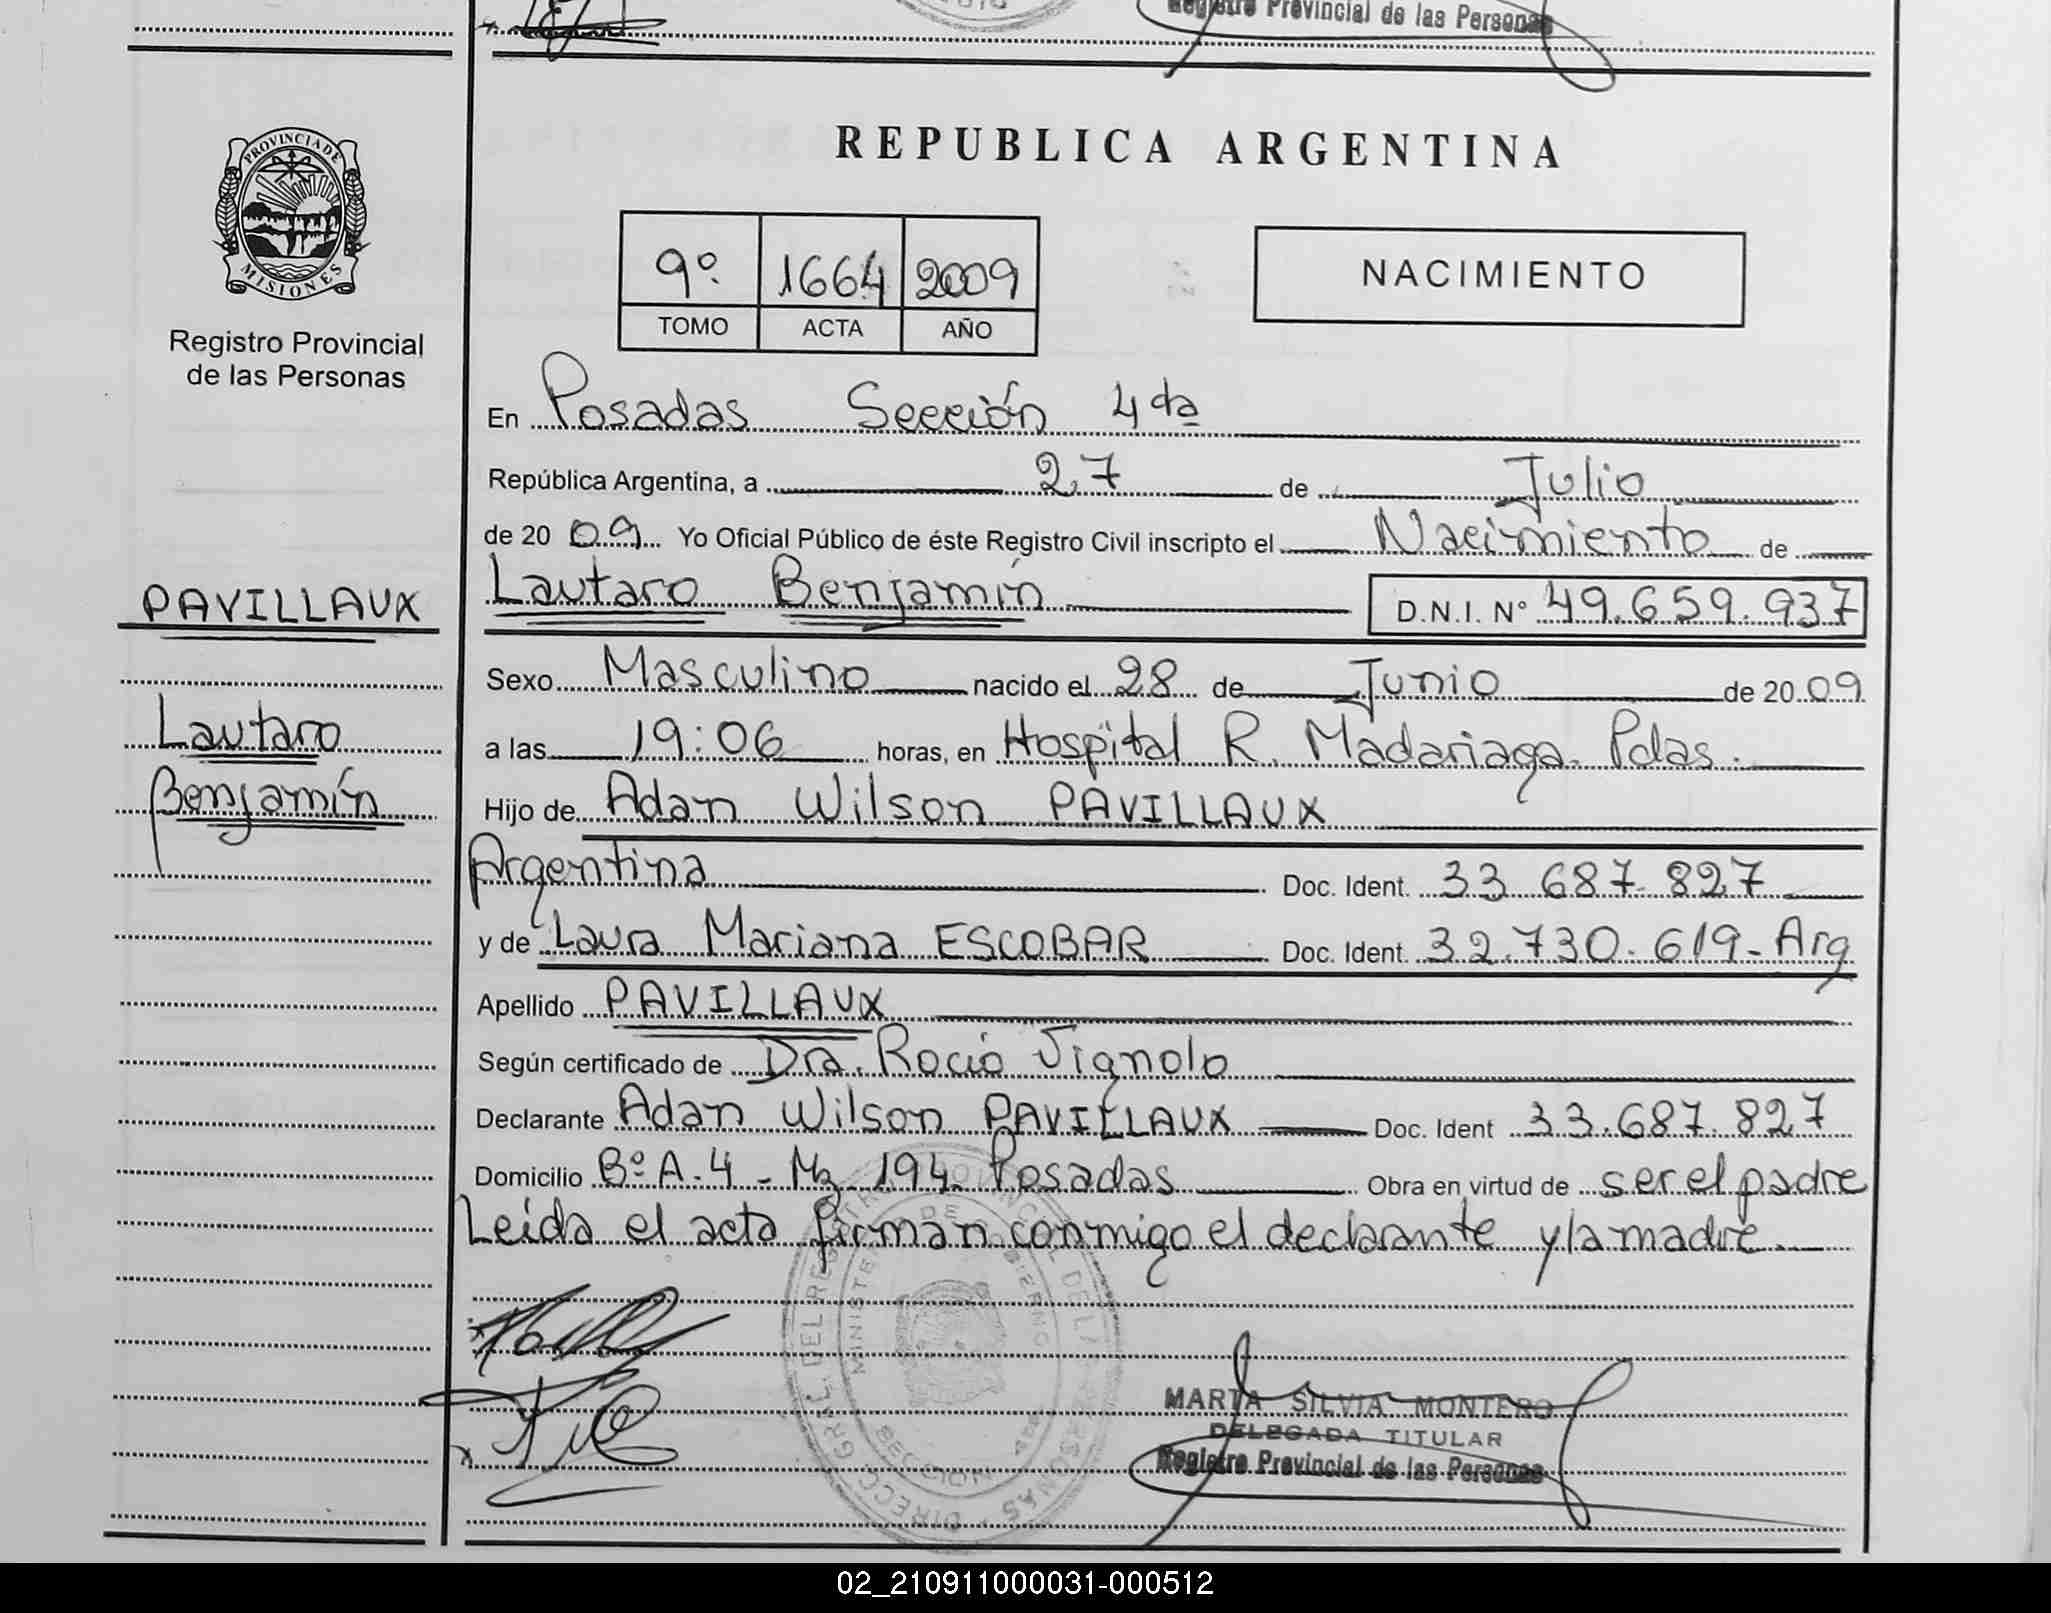 Registro Provincial de las Personas
REPUBLICA ARGENTINA
PROVINCIA DE
MISIONES
Registro Provincial
de las Personas
9º 1664 2009
TOMO ACTA AÑO
NACIMIENTO
En Posadas Sección 4da
República Argentina, a 27 de Julio
de 20 09 Yo Oficial Público de éste Registro Civil inscripto el Nacimiento de
Lautaro Benjamín D.N.I. N° 49.659.937
PAVILLAUX
Lautaro
Benjamín
Sexo Masculino nacido el 28 de Junio de 20 09
a las 19:06 horas, en Hospital R. Madariaga. Pdas.
Hijo de Adan Wilson PAVILLAUX
Argentina Doc. Ident. 33 687.827
y de Laura Mariana ESCOBAR Doc. Ident. 32.730.619- Arg
Apellido PAVILLAUX
Según certificado de Dra. Rocio Vignolo
Declarante Adan Wilson PAVILLAUX Doc. Ident 33.687.827
Domicilio Bº A.4 - Mz 194. Posadas Obra en virtud de ser el padre
Leída el acta firman conmigo el declarante y la madre
DIRECC. GRAL. DEL REGISTRO PROVINCIAL DE LAS PERSONAS
MINISTERIO DE GOBIERNO
SECCION 4ta
MARTA SILVIA MONTERO
DELEGADA TITULAR
Registro Provincial de las Personas
02_210911000031-000512